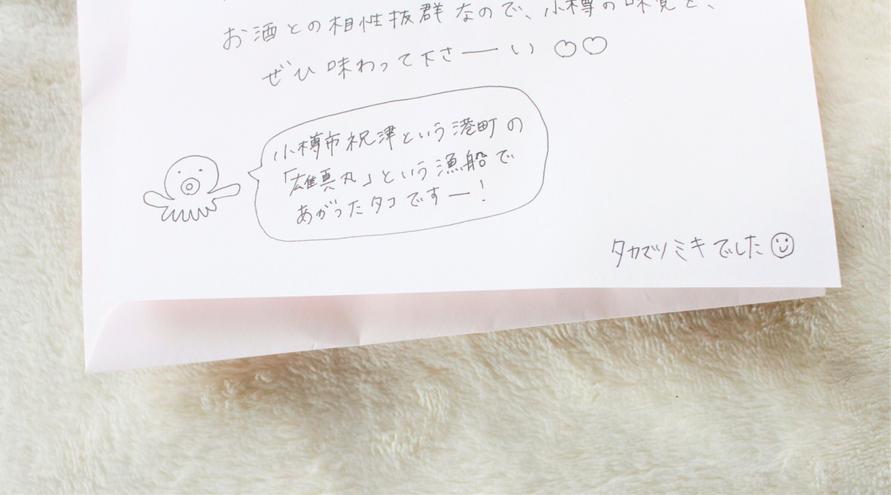 お酒との相性抜群なので、小樽の味覚を、
ぜひ味わって下さーい♡♡
小樽市祝津という港町の
「雄真丸」という漁船で
あがったタコですー！
タカマツミキでした☺